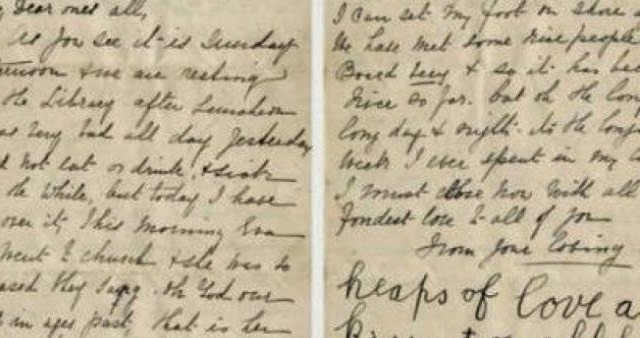 Dear ones all,
As you see it is Sunday
afternoon & we are resting
the Library after Luncheon
was very bad all day yesterday
not eat or drink, & sick
the while, but today I have
over it, This morning Eva
went to church & she was so
they sang Oh God our
in ages past, that is her
I can set my foot on shore
We have met some nice people
Board &  so it has
nice so far. but oh the long
long day & night. its the longest
I ever spent in my
I must close now with all
Fondest love to all of you
From your loving
heaps of love a